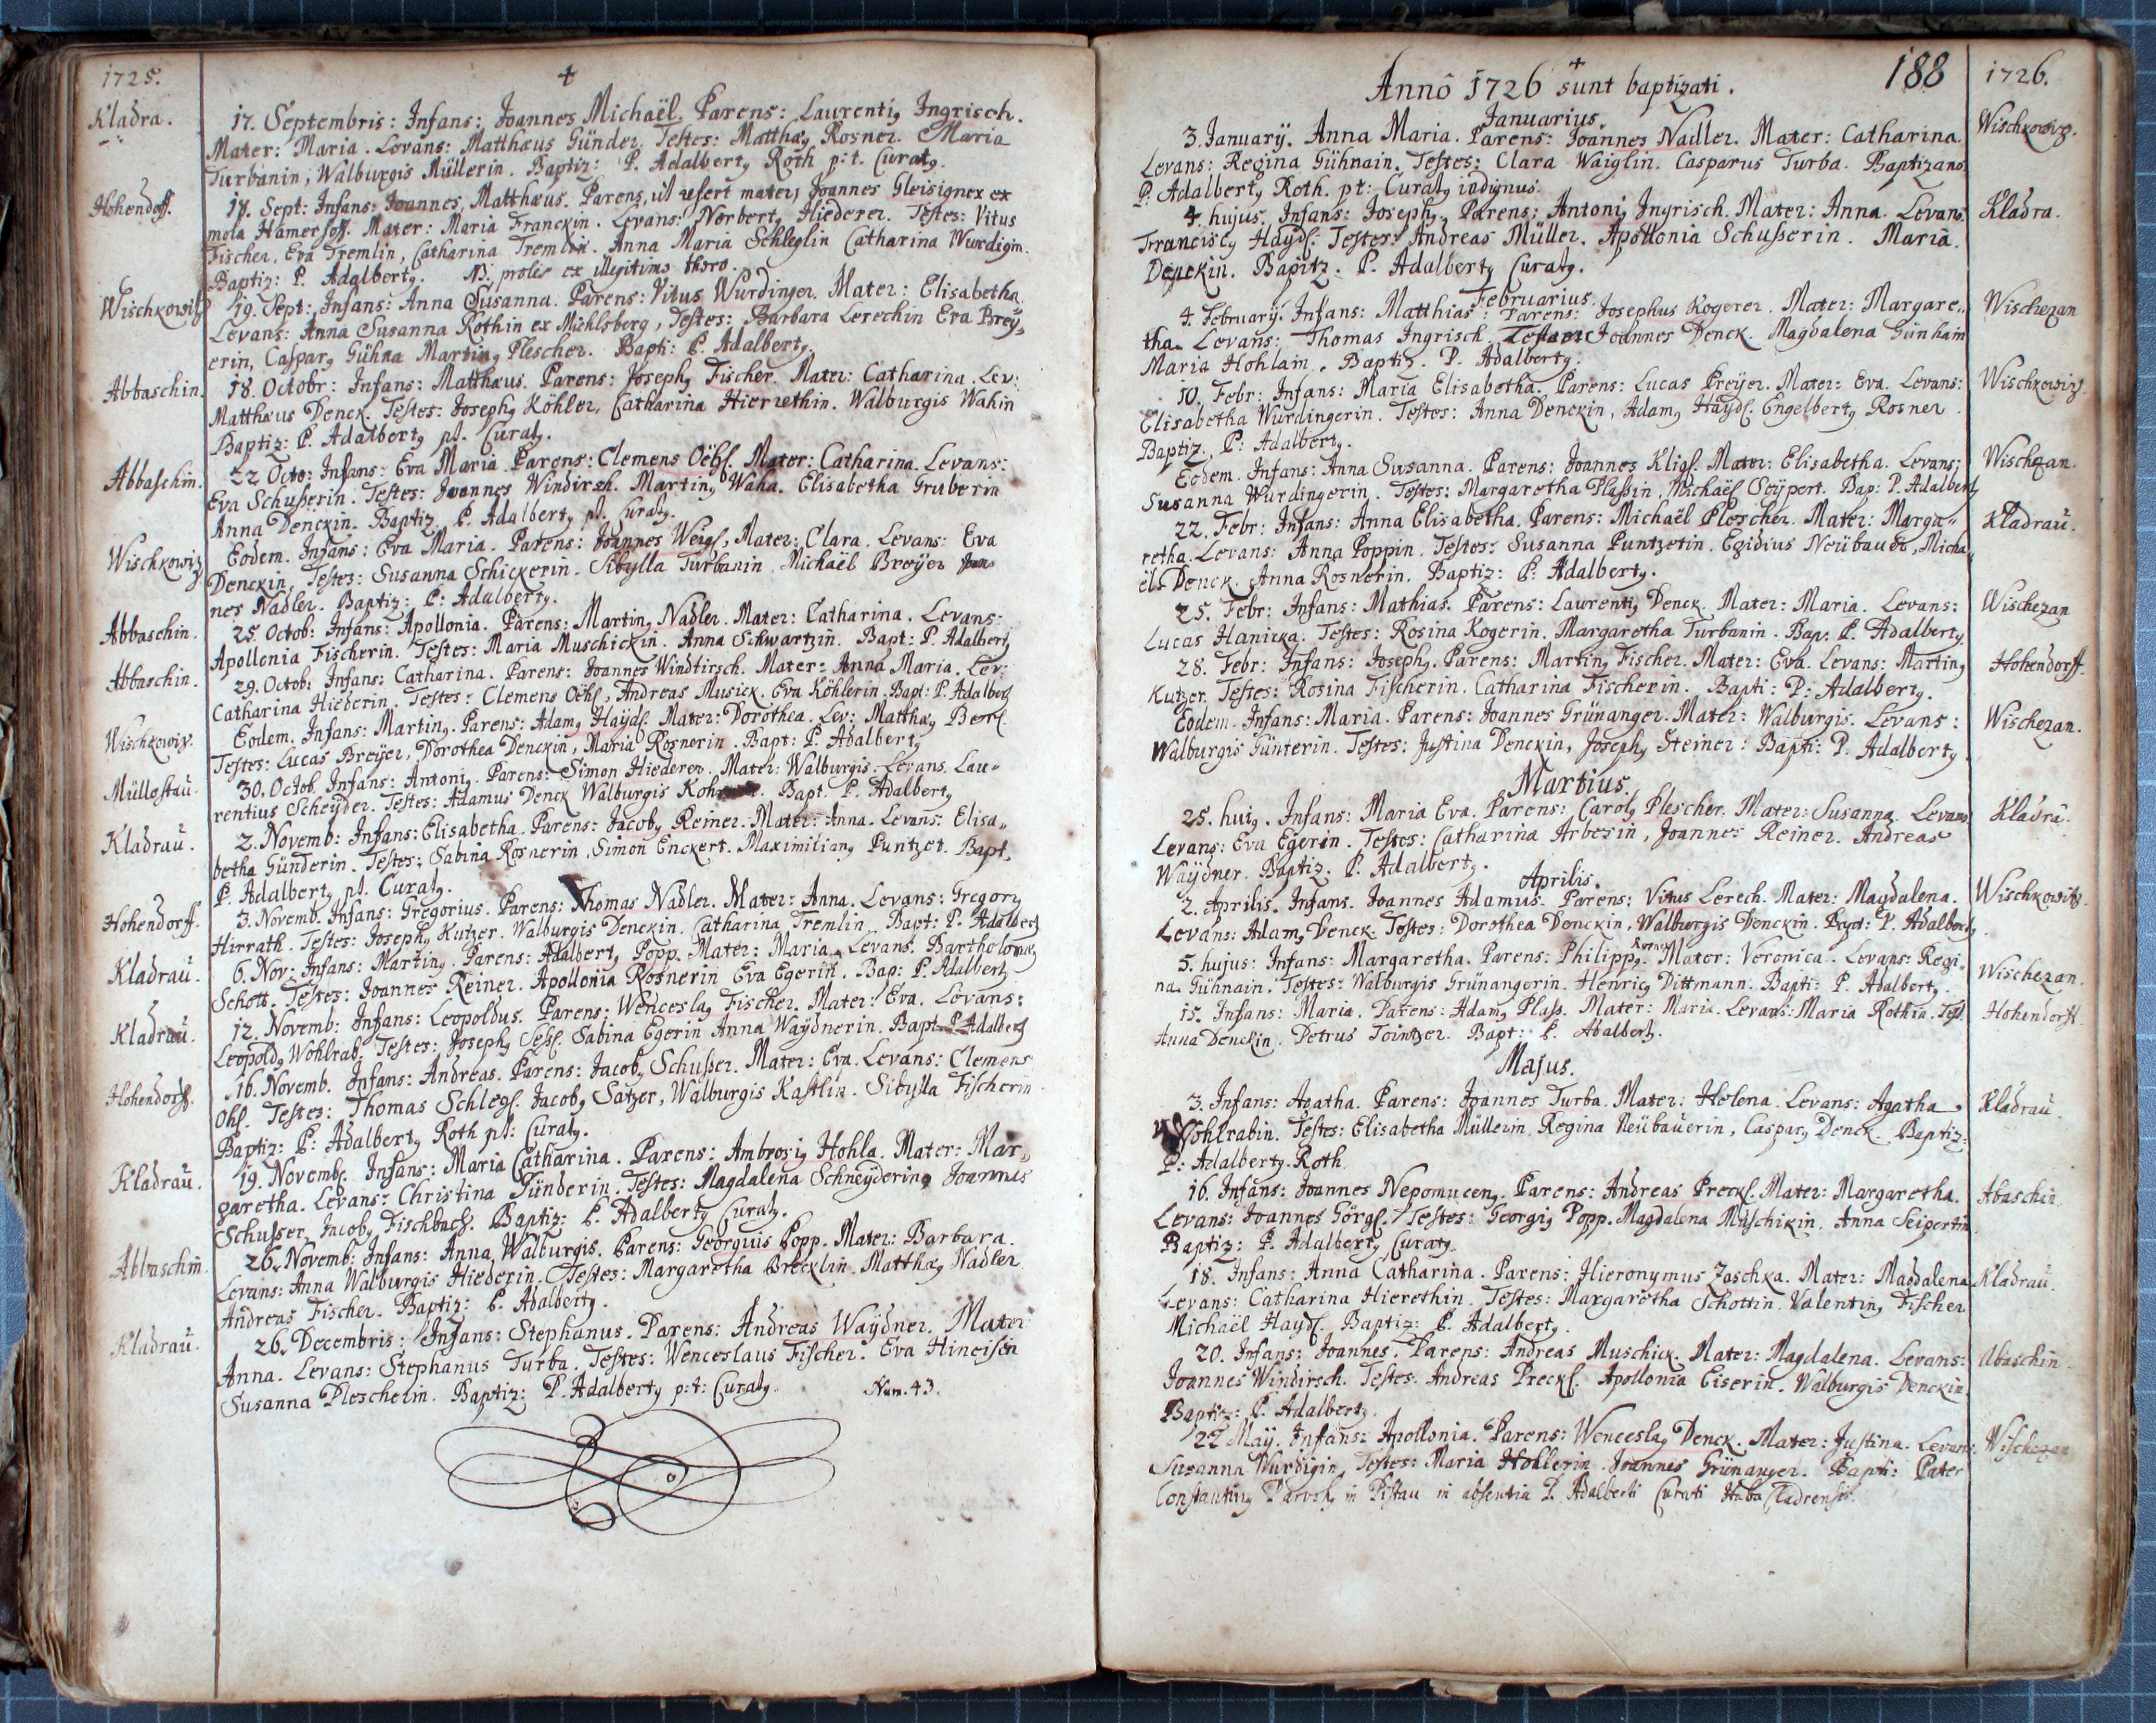 1725.
Kladra.
17. Septembris: Infans: Joannes Michaël. Parens: Laurentig Ingrisch.
Mater: Maria. Levans: Matthæus Günder. Testes: Matthæg Rosner. Maria
Turbanin, Walburgis Müllerin. Baptiz: P. Adalbertg Roth p:t. Curatg.
Hohendoff.
17. Sept: Infans: Joannes, Matthæus. Parens, ut refert mater, Joannes Gleisigner ex
mola Hamerhoff. Mater: Maria Franckin. Levans: Norbertg Hiederer. Testes: Vitus
Fischer, Eva Tremlin, Catharina Tremlin. Anna Maria Schleglin Catharina Wurdigin.
Baptiz: P. Adalbertg. NB. proles ex illegitimo thoro.
Wischkowitz
19. Sept: Infans: Anna Susanna. Parens: Vitus Wurdinger. Mater: Elisabetha.
Levans: Anna Susanna Rothin ex Michlsberg, Testes: Barbara Lerechin Eva Brey„
erin, Casparg Gühna Marting Plescher. Bapti: P. Adalbertg.
Abbaschin.
18. Octobr: Infans: Matthæus. Parens: Josephg Fischer. Mater: Catharina. Lev:
Matthæus Denck. Testes: Josephg Köhler, Catharina Hierrethin. Walburgis Wahin
Baptiz: P. Adalbertg pt. Curatg.
Abbaschin.
22 Octo: Infans: Eva Maria. Parens: Clemens Oëhs. Mater: Catharina. Levans:
Eva Schusserin. Testes: Joannes Windirsch. Marting Waha. Elisabetha Gruberin
Anna Denckin. Baptiz: P. Adalbertg pt. Curatg.
Wischkowiz
Eodem. Infans: Eva Maria. Parens: Joannes Weigl, Mater: Clara. Levans: Eva
Denckin, Testes: Susanna Schickerin. Sibylla Turbanin. Michaël Breÿer Joan„
nes Nadler. Baptiz: P: Adalbertg.
Abbaschin.
25. Octob: Infans: Apollonia. Parens: Marting Nadler. Mater: Catharina. Levans:
Apollonia Fischerin. Testes: Maria Muschickin. Anna Schwartzin. Bapt: P. Adalbertg
Abbaschin.
29. Octob: Infans: Catharina. Parens: Joannes Windtirsch. Mater: Anna Maria. Lev:
Catharina Hiederin. Testes: Clemens Oëhs, Andreas Musick. Eva Köhlerin. Bapt: P. Adalbertg
Wischkowiz.
Eodem. Infans: Marting. Parens: Adamg Haÿdl. Mater: Dorothea. Lev: Matthæg
Testes: Lucas Breÿer, Dorothea Denckin, Maria Rosnerin. Bapt: P. Adalbertg
Müllostau.
30. Octob. Infans: Antonig. Parens: Simon Hiederer. Mater: Walburgis. Levans. Lau„
rentius Scheÿder. Testes: Adamus Denck Walburgis Bapt. P. Adalbertg
Kladrau.
2. Novemb: Infans: Elisabetha. Parens: Jacobg Reiner. Mater: Anna. Levans: Elisa„
betha Günderin. Testes: Sabina Rosnerin, Simon Enckert. Maximiliang Puntzet. Bapt.
P. Adalbertg pt. Curatg.
Hohendorff.
3. Novemb. Infans: Gregorius. Parens: Thomas Nadler. Mater: Anna. Levans: Gregorg
Hirrath. Testes: Josephg Kutzer. Walburgis Denckin. Catharina Tremlin. Bapt: P. Adalbertg
Kladrau.
6. Nov: Infans: Marting. Parens: Adalbertg Popp. Mater: Maria. Levans: Bartholomæg
Schott. Testes: Joannes Reiner. Apollonia Rosnerin Eva Egerin. Bap: P. Adalbertg
Kladrau.
12. Novemb: Infans: Leopoldus. Parens: Wenceslag Fischer. Mater: Eva. Levans:
Leopoldg Wohlrab. Testes: Josephg Sabina Egerin Anna Waÿdnerin. Bapt. P. Adalbertg
Hohendorff.
16. Novemb. Infans: Andreas. Parens: Jacobg Schusser. Mater: Eva. Levans: Clemens
Ohs. Testes: Thomas Schlegl. Jacobg Satzer, Walburgis Kastlin. Sibylla Fischerin
Baptiz: P: Adalbertg Roth pt: Curatg.
Kladrau.
19. Novemb. Infans: Maria Catharina. Parens: Ambrosig Hohla. Mater: Mar„
garetha. Levans: Christina Günderin. Testes: Magdalena Schneÿdering Joannes
Schusser, Jacobg Fischbach. Baptiz: P. Adalbertg Curatg.
Abbaschin.
26. Novemb: Infans: Anna, Walburgis. Parens: Georgius Popp. Mater: Barbara.
Levans: Anna Walburgis Hiederin. Testes: Margaretha Brecklin. Matthæg Nadler
Andreas Fischer. Baptiz: P. Adalbertg.
Kladrau.
26. Decembris: Infans: Stephanus. Parens: Andreas Waÿdner. Mater
Anna. Levans: Stephanus Turba. Testes: Wenceslaus Fischer. Eva Hineisin
Susanna Plescherin. Baptiz: P. Adalbertg p:t: Curatg. Num. 43.
188
1726.
Anno 1726 sunt baptizati.
Januarius.
3. Januarÿ. Anna Maria. Parens: Joannes Nadler. Mater: Catharina.
Wischkowiz.
Levans: Regina Gühnain. Testes: Clara Waiglin. Casparus Turba. Baptizans
P: Adalbertg Roth. pt: Curatg indignus.
4. hujus. Infans: Josephg. Parens: Antonig Ingrisch. Mater: Anna. Levans:
Kladra.
Franciscg Haÿdl. Testes: Andreas Müller. Apollonia Schusserin. Maria
Denckin. Bapitz. P. Adalbertg Curatg.
Februarius.
4. Februarÿ. Infans: Matthias. Parens: Josephus Kogerer. Mater: Margare„
Wischezan
tha. Levans: Thomas Ingrisch Joannes Denck. Magdalena Günhain
Maria Hohlain. Baptiz. P. Adalbertg.
10. Febr: Infans: Maria Elisabetha. Parens: Lucas Preÿer. Mater: Eva. Levans:
Wischkowiz.
Elisabetha Wurdingerin. Testes: Anna Denckin, Adamg Haÿdl. Engelbertg Rosner.
Baptiz. P: Adalbertg.
Eodem. Infans: Anna Susanna. Parens: Joannes Kligl. Mater: Elisabetha. Levans:
Wischezan.
Susanna Wurdingerin. Testes: Margaretha Plassin, Michaël Seÿpert. Bap: P. Adalbertg
22. Febr: Infans: Anna Elisabetha. Parens: Michaël Plescher. Mater: Marga„
Kladrau.
retha. Levans: Anna Poppin. Testes: Susanna Puntzetin. Egidius Neübauer, Micha„
ël Denck. Anna Rosnerin. Baptiz: P: Adalbertg.
25. Febr: Infans: Mathias. Parens: Laurentig Denck. Mater: Maria. Levans:
Wischezan
Lucas Hanicka. Testes: Rosina Kogerin. Margaretha Turbanin. Bap. P. Adalbertg.
28. Febr: Infans: Josephg. Parens: Marting Fischer. Mater: Eva. Levans: Marting
Hohendorff.
Kutzer. Testes: Rosina Fischerin. Catharina Fischerin. Bapti: P: Adalbertg.
Eodem. Infans: Maria. Parens: Joannes Grünanger. Mater: Walburgis. Levans:
Wischezan.
Walburgis Günterin. Testes: Justina Denckin, Josephg Steiner: Bapti: P. Adalbertg.
Martius.
25. huig. Infans: Maria Eva. Parens: Carolg Plescher. Mater: Susanna. Levans
Kladra.
Levans: Eva Egerin. Testes: Catharina Arbesin, Joannes Reiner. Andreas
Waÿdner. Baptiz. P. Adalbertg.
Aprilis.
2. Aprilis. Infans. Joannes Adamus. Parens: Vitus Lerech. Mater: Magdalena.
Wischkowitz.
Levans: Adamg Denck. Testes: Dorothea Denckin, Walburgis Denckin. Bapt: P. Adalbertg.
5. hujus: Infans: Margaretha. Parens: Philippg. Mater: Veronica. Levans: Regi„
Wischezan.
na Gühnain. Testes: Walburgis Grünangerin. Henricg Dittmann. Bapti: P. Adalbertg.
15. Infans: Maria. Parens: Adamg Plass. Mater: Maria. Levans: Maria Rothin. Test.
Hohendorff.
Anna Denckin. Petrus Tointzer. Bapt: P. Adalbertg.
Majus.
3. Infans: Agatha. Parens: Joannes Turba. Mater: Helena. Levans: Agatha
Kladrau.
Wohlrabin. Testes: Elisabetha Müllerin. Regina Neübauerin, Casparg Denck. Baptiz:
P: Adalbertg. Roth.
16. Infans: Joannes Nepomuceng. Parens: Andreas Preckl. Mater: Margaretha.
Abaschin.
Levans: Joannes Görgl. Testes: Georgig Popp. Magdalena Muschikin. Anna Seipertin
Baptiz: P. Adalbertg Curatg.
18. Infans: Anna Catharina. Parens: Hieronymus Zaschka. Mater: Magdalena
Kladrau.
Levans: Catharina Hierethin. Testes: Margaretha Schottin. Valenting Fischer
Michaël Haydl. Baptiz: P. Adalbertg.
20. Infans: Joannes. Parens: Andreas Muschick. Mater: Magdalena. Levans:
Abaschin.
Joannes Windirsch. Testes: Andreas Preckl. Apollonia Eiserin. Walburgis Denckin
Baptiz: P. Adalbertg.
22 Maÿ. Infans: Apollonia. Parens: Wenceslag Denck. Mater: Justina. Levans.
Wischezan
Susanna Würdigin. Testes: Maria Hohlerin. Joannes Grünanger. Bapti: Pater
Constanting in Pistau in absentia P. Adalberti Curati